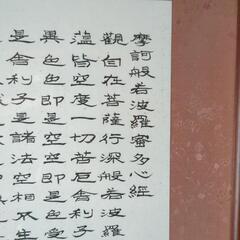 摩訶般若波羅蜜多心經
觀自在菩薩行深般若波羅
蘊皆空度一切苦厄舍利子
異色色即是空空即是色受
是舍利子是諸法空相不生